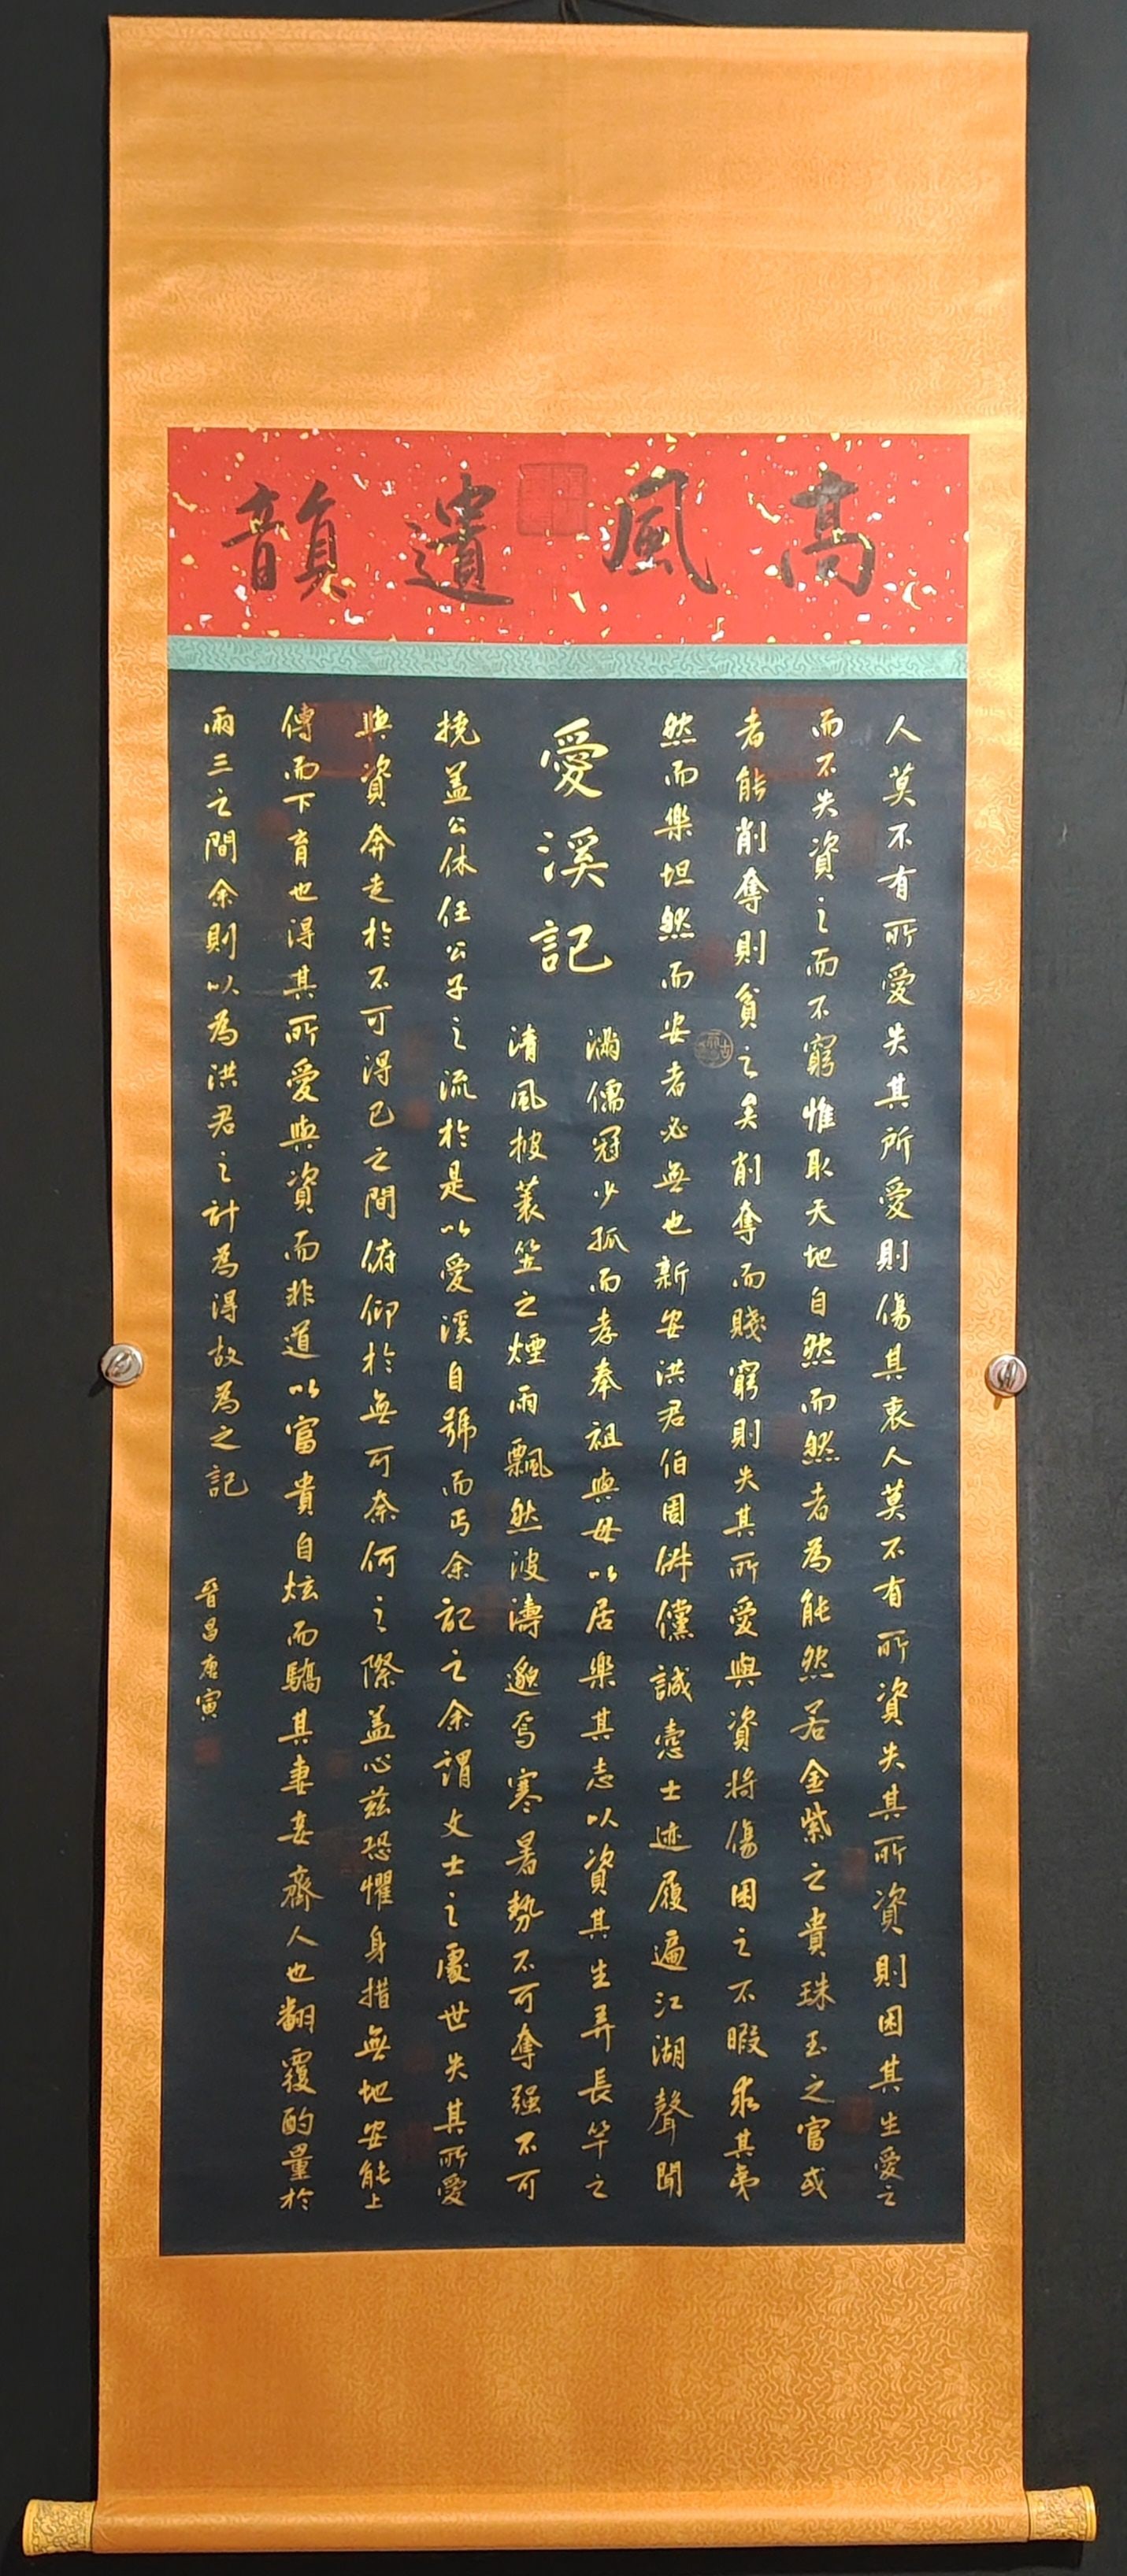 高風遺韻
愛溪記
人莫不有所愛失其所愛則傷其衷人莫不有所資失其所資則困其生愛之
而不失資之而不窮惟取天地自然而然者為能然若金紫之貴珠玉之富或
者能削奪則貧之矣削奪而賤窮則失其所愛與資將傷困之不暇求其
然而樂坦然而安者必無也新安洪君伯周倜儻誠慤士迹履遍江湖聲聞
滿儒冠少孤而孝奉祖與母以居樂其志以資其生弄長竿之
清風披蓑笠之煙雨飄然波濤邈焉寒暑勢不可奪强不可
撓盖公休任公子之流於是以愛溪自號而丐余記之余謂文士之處世失其所愛
與資奔走於不可得已之間俯仰於無可奈何之際盖心茲恐懼身措無地安能上
傳而下育也得其所愛與資而非道以富貴自炫而驕其妻妾齋人也翻覆酌量於
兩三之間余則以為洪君之計為得故為之記
晉昌唐寅